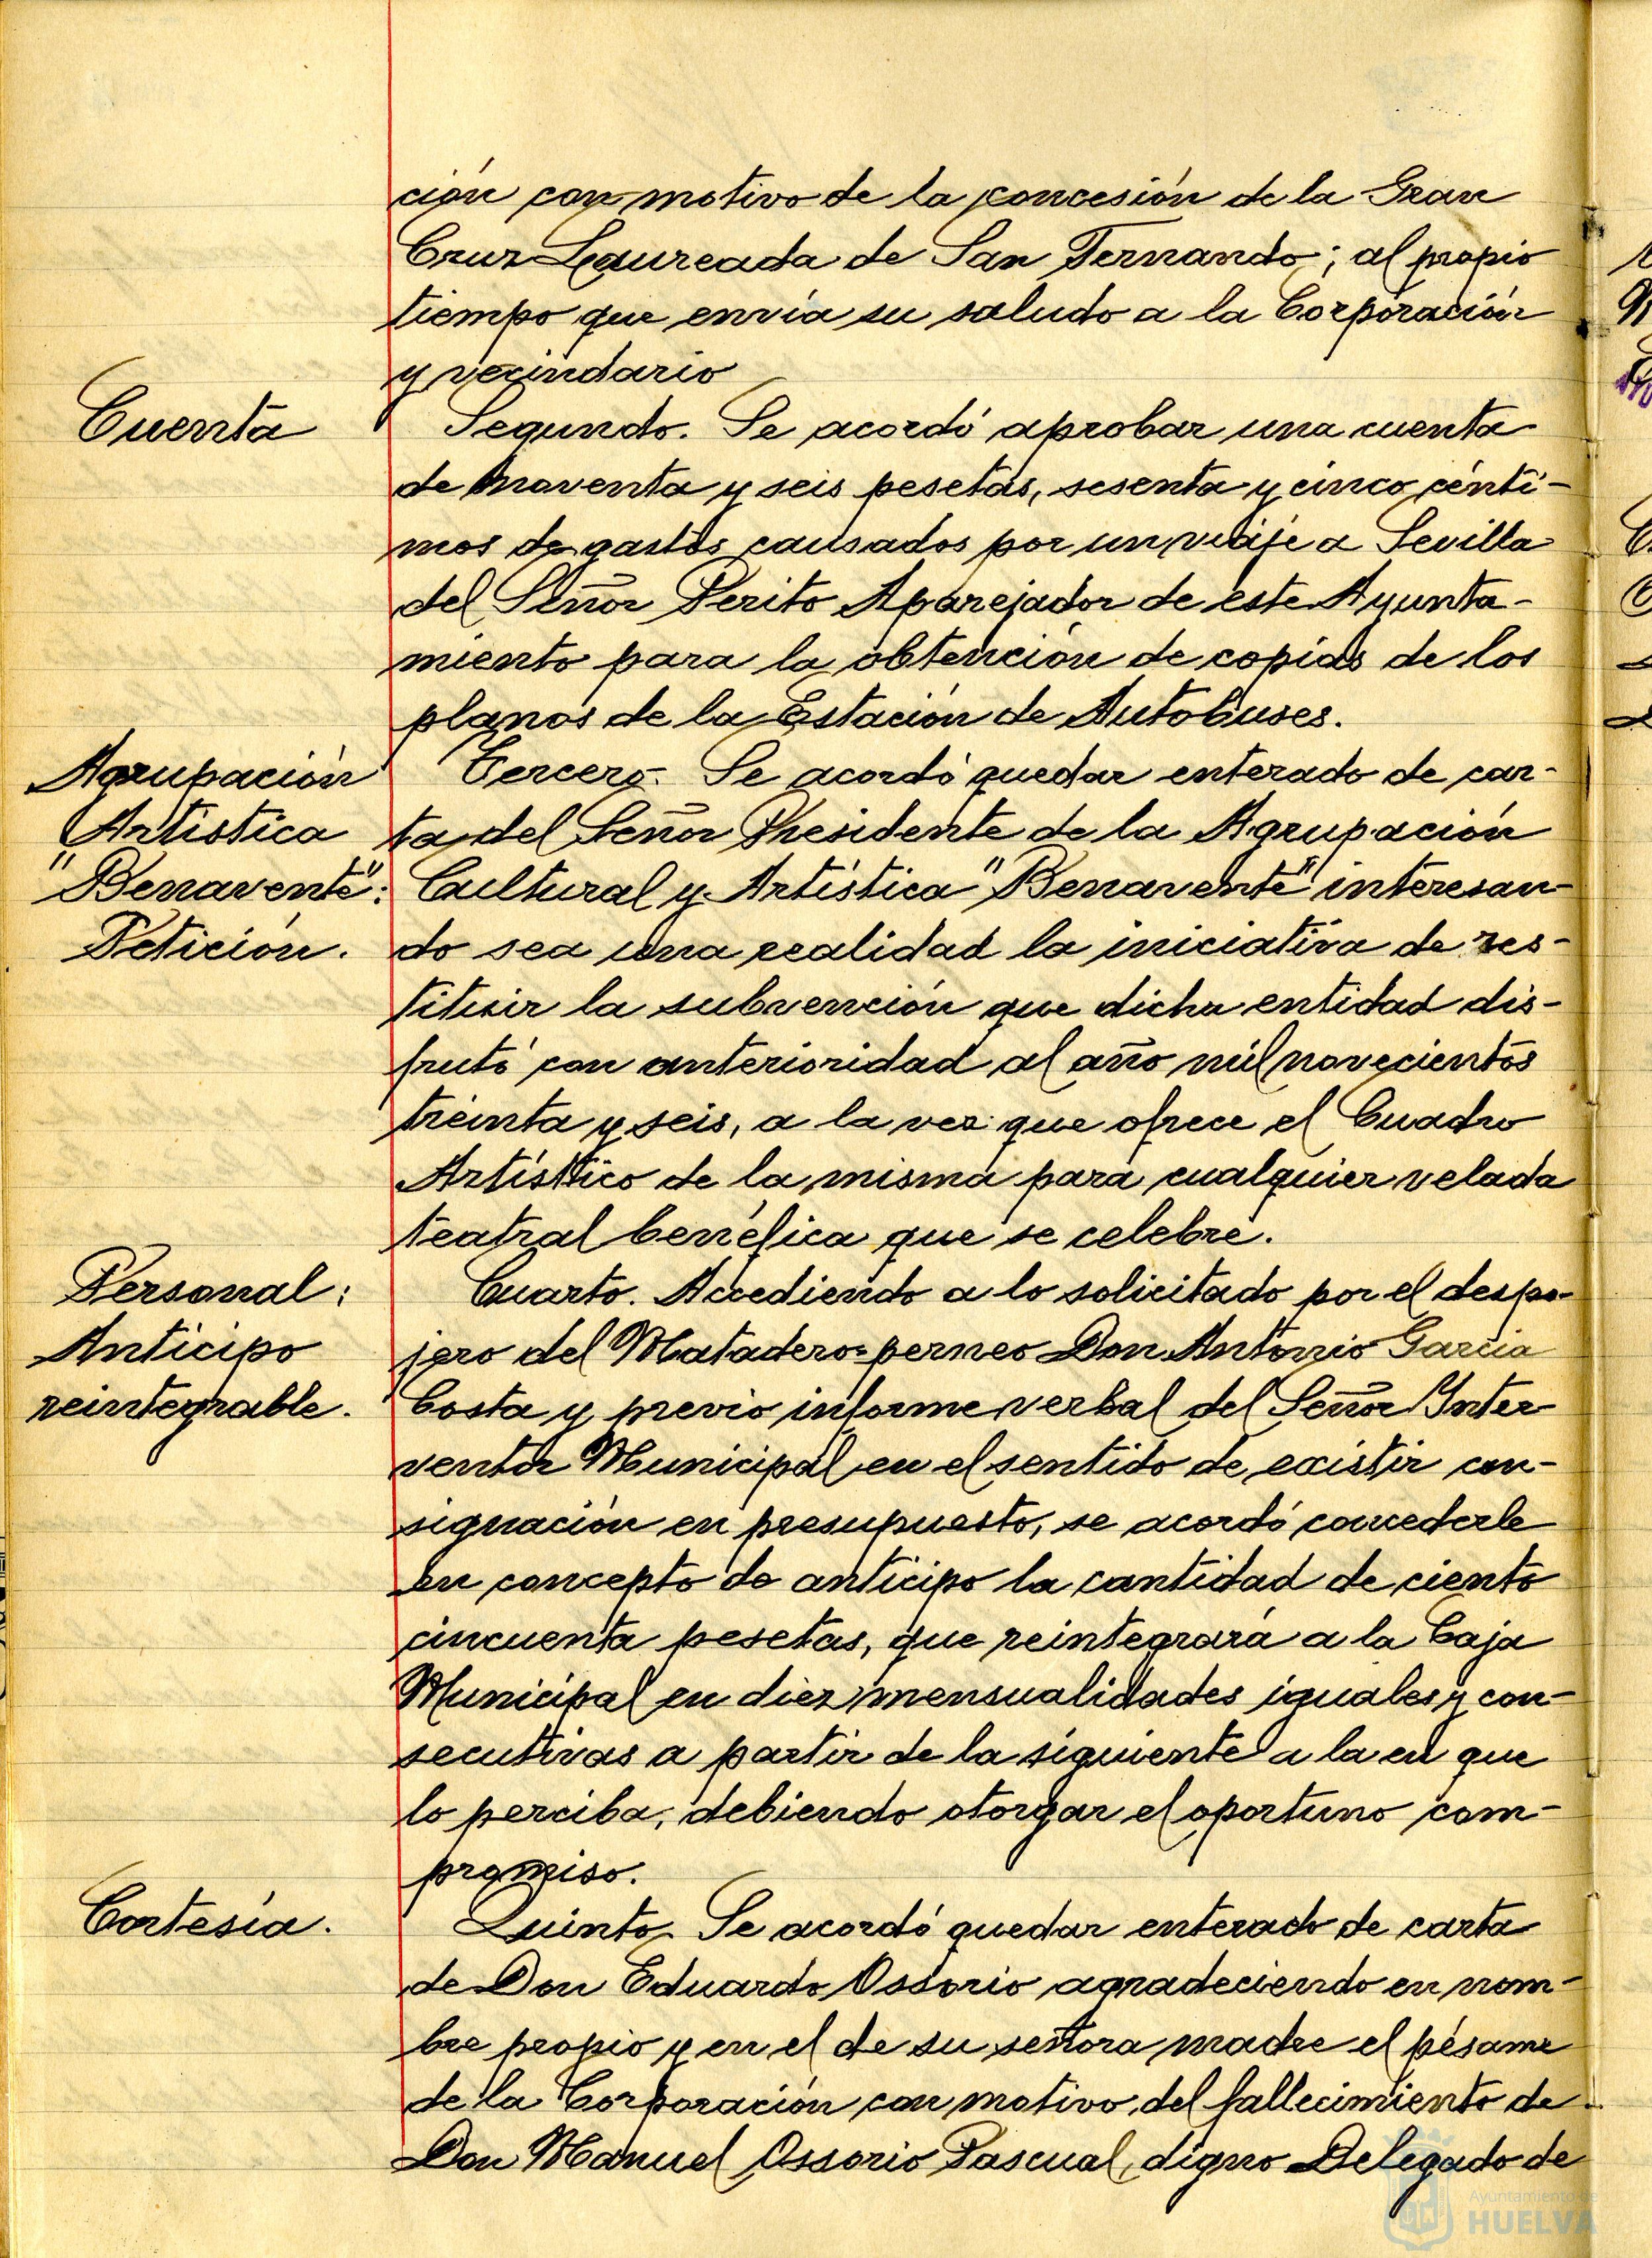 ción con motivo de la concesión de la Gran
Cruz Laureada de San Fernando; al propio
tiempo que envía su saludo a la Corporación
y vecindario
Cuenta
Segundo. Se acordó aprobar una cuenta
de noventa y seis pesetas, sesenta y cinco cénti-
mos de gastos causados por un viaje a Sevilla
del Señor Perito Aparejador de este Ayunta-
miento para la obtención de copias de los
planos de la Estación de Autobuses.
Agrupación
Artística
"Benavente":
Petición.
Tercero. Se acordó quedar enterado de car-
ta del Señor Presidente de la Agrupación
Cultural y Artística "Benavente" interesan-
do sea una realidad la iniciativa de res-
tituir la subvención que dicha entidad dis-
frutó con anterioridad al año mil novecientos
treinta y seis, a la vez que ofrece el Cuadro
Artístico de la misma para cualquier velada
teatral benéfica que se celebre.
Personal:
Anticipo
reintegrable.
Cuarto. Accediendo a lo solicitado por el despo-
jero del Matadero=perneo Don Antonio Garcia
Costa y previo informe verbal del Señor Inter
ventor Municipal en el sentido de existir con-
signación en presupuesto, se acordó concederle
en concepto de anticipo la cantidad de ciento
cincuenta pesetas, que reintegrará a la Caja
Municipal en diez mensualidades iguales y con-
secutivas a partir de la siguiente a la en que
lo perciba, debiendo otorgar el oportuno com-
promiso.
Cortesía.
Quinto. Se acordó quedar enterado de carta
de Don Eduardo Ossorio agradeciendo en nom-
bre propio y en el de su señora madre el pésame
de la Corporación con motivo del fallecimiento de
Don Manuel Ossorio Pascual, digno Delegado de
Ayuntamiento de
HUELVA